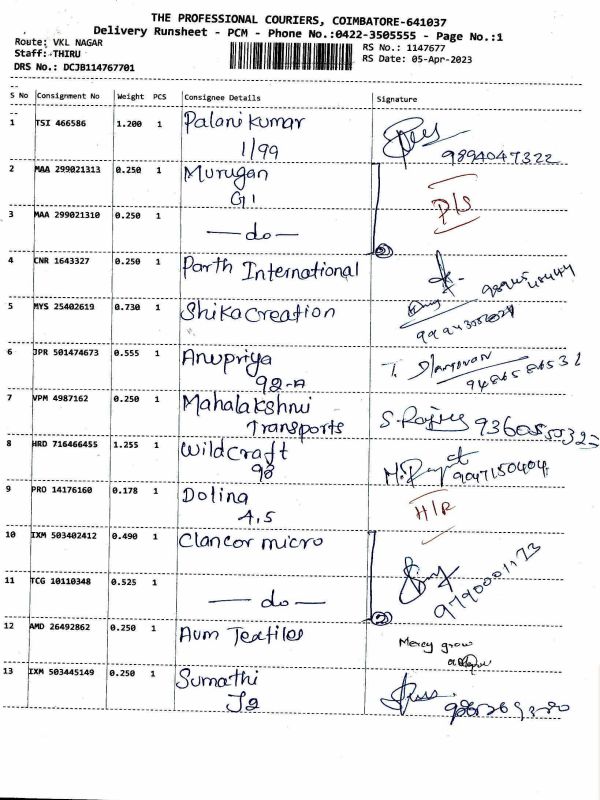 THE PROFESSIONAL COURIERS, COIMBATORE-641037
Delivery Runsheet - PCM - Phone No.:0422-3505555 - Page No.:1
Route: VKL NAGAR
RS No.: 1147677
Staff: THIRU
RS Date: 05-Apr-2023
DRS No.: DCJB114767701
S No Consignment No Weight PCS Consignee Details Signature
1 TSI 466586 1.200 1 Palani Kumar
1/99 9894047322
2 MAA 299021313 0.250 1 Murugan
G1 P/S
3 MAA 299021310 0.250 1
— do — 2
4 CNR 1643327 0.250 1 Parth International
5 MYS 25402619 0.730 1 Shika Creation
6 JPR 501474673 0.555 1 Anupriya
92-A
7 VPM 4987162 0.250 1 Mahalakshmi
Transports 9360550322
8 HRD 716466455 1.255 1 Wildcraft
98 9047150404
9 PRO 14176160 0.178 1 Dolina
4,5 H/R
10 IXM 503402412 0.490 1 Clancor micro
9790001173
11 TCG 10110348 0.525 1
— do — 2
12 AMD 26492862 0.250 1 Aum Textiles
Mercy grow
13 IXM 503445149 0.250 1 Sumathi
J2